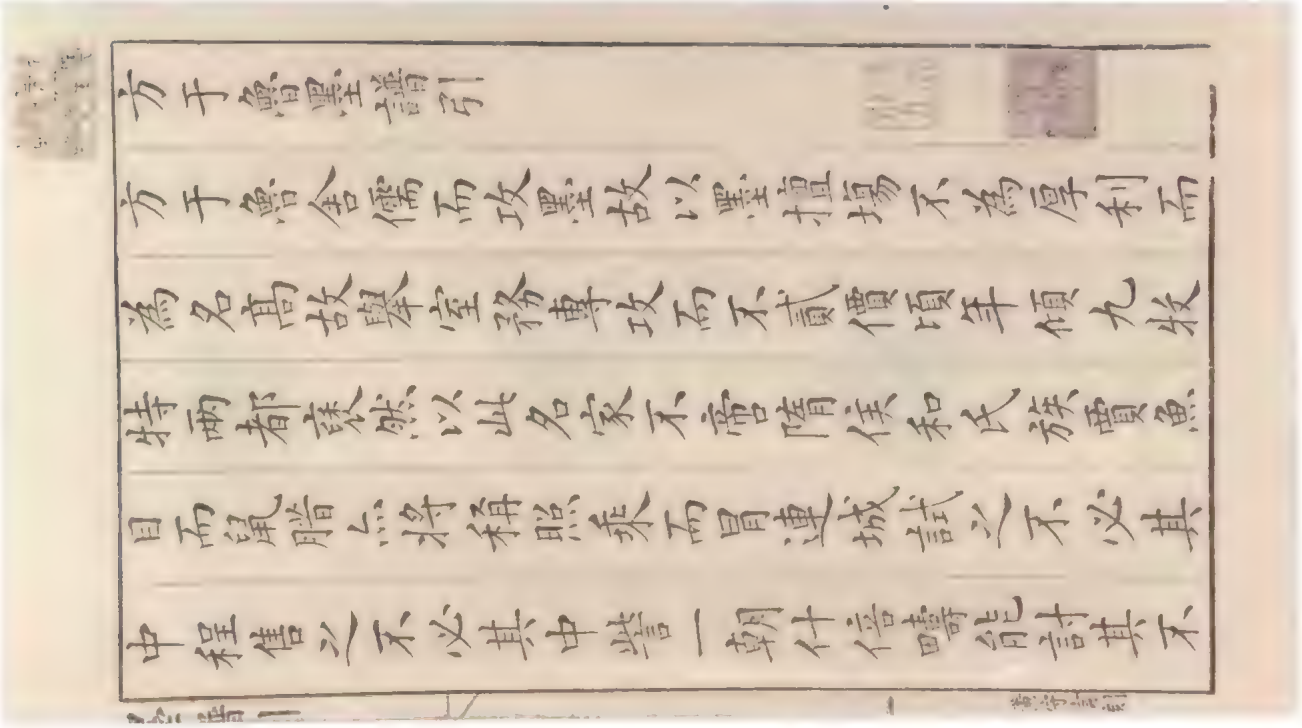 方于魯墨譜引
方于魯舍儒而攻墨故以墨擅場不為厚利而
為名高故舉室務專攻而不貳價頃年傾九牧
特兩都譟然以此名家不啻隋侯和氏族賈魚
目而鼠腊亾將稱照乘而冒連城試之不必其
中程售之不必其中訾一朝什倍疇能計其不